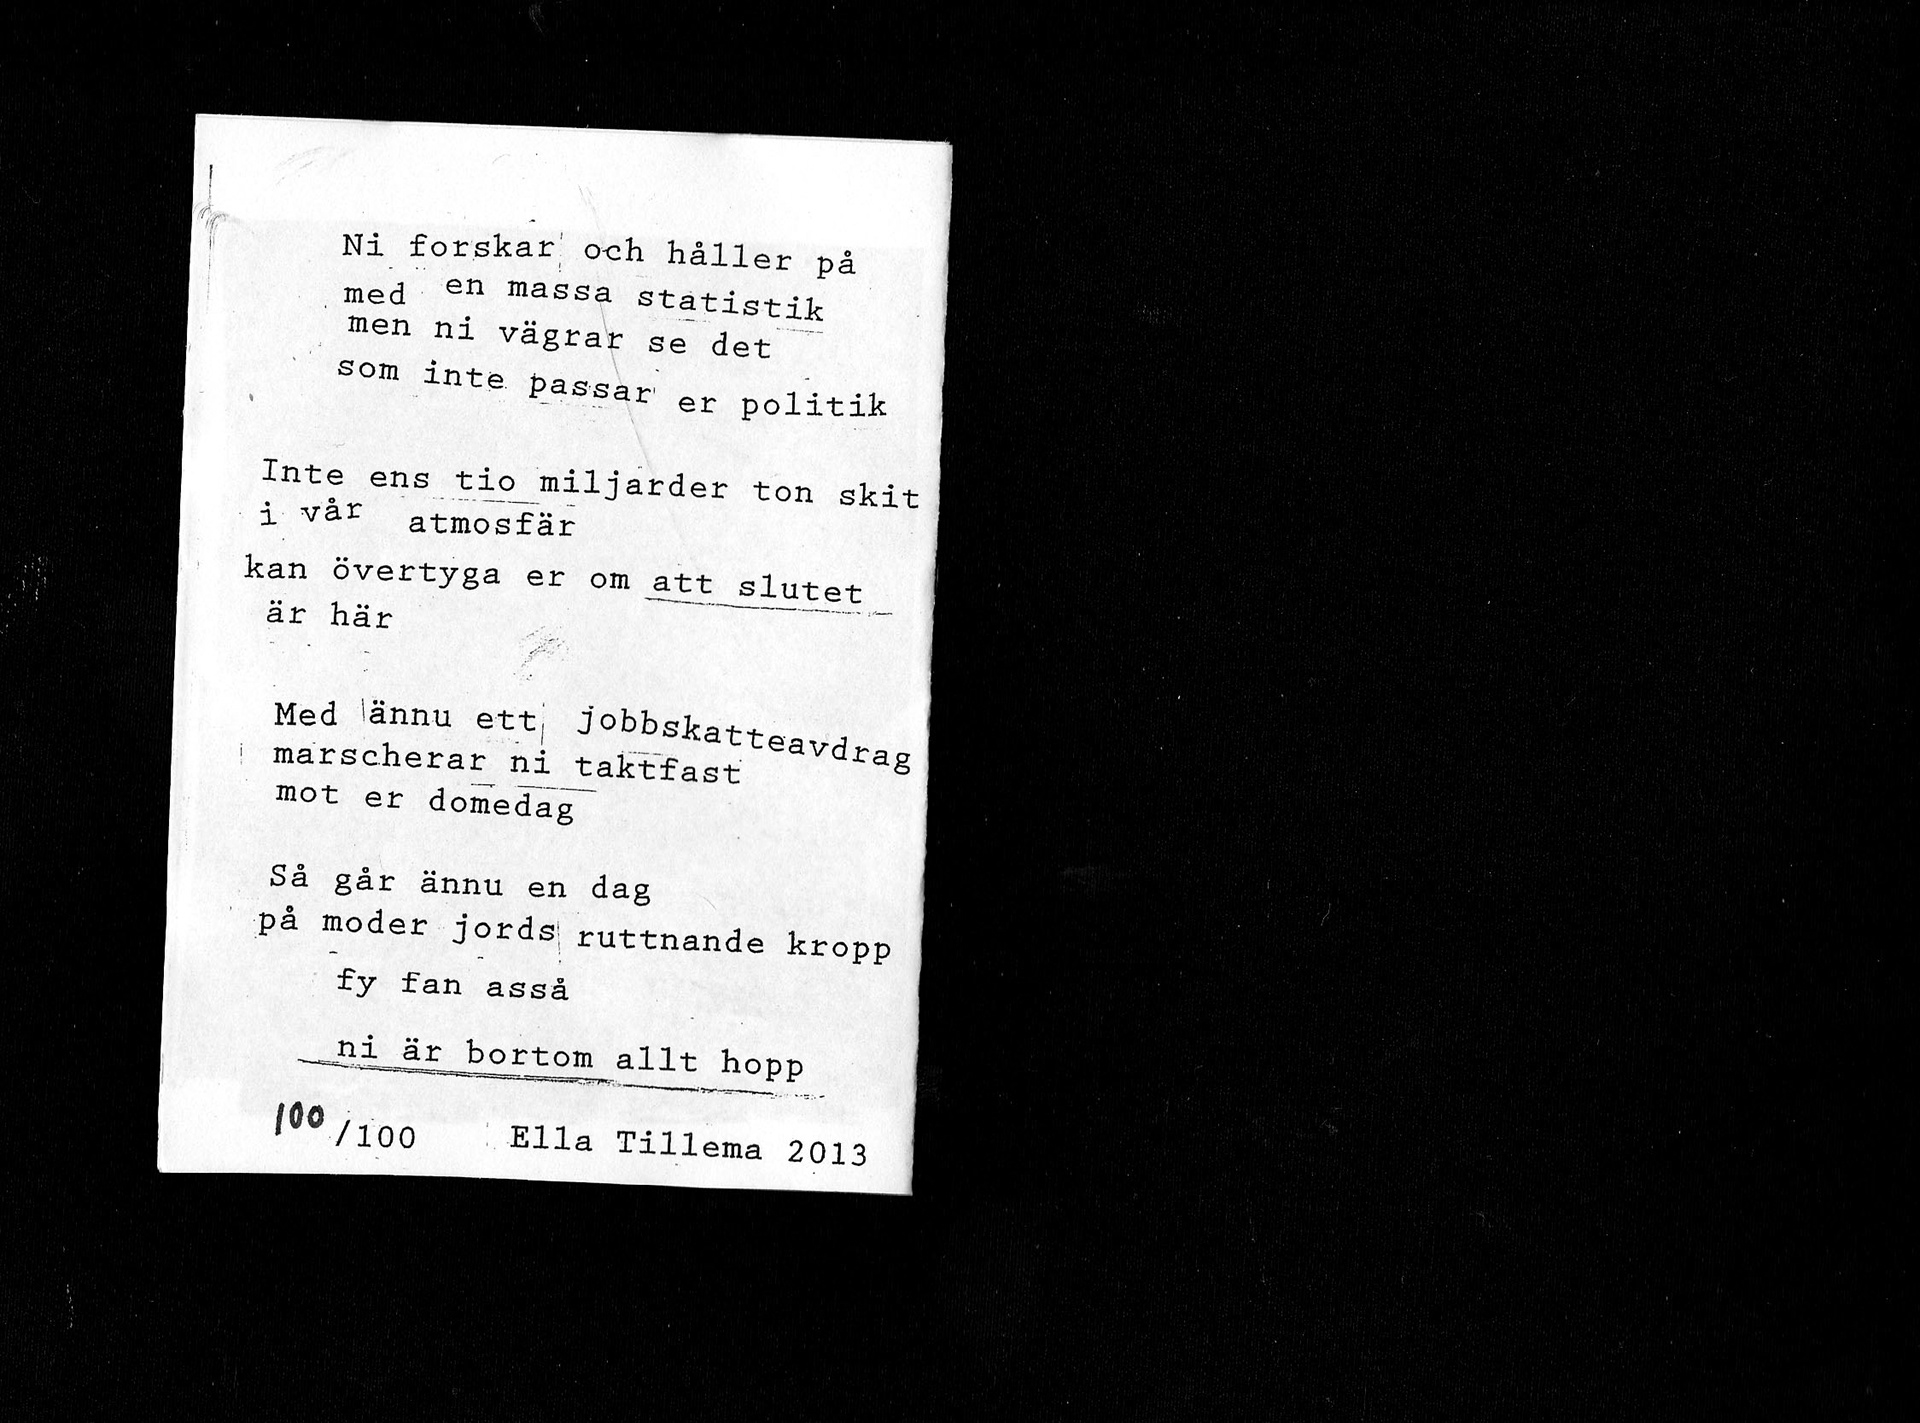 Ni forskar och håller på
med en massa statistik
men ni vägrar se det
som inte passar er politik
Inte ens tio miljarder ton skit
i vår atmosfär
kan övertyga er om att slutet
är här
Med ännu ett jobbskatteavdrag
marscherar ni taktfast
mot er domedag
Så går ännu en dag
på moder jords ruttnande kropp
fy fan asså
ni är bortom allt hopp
100/100 Ella Tillema 2013